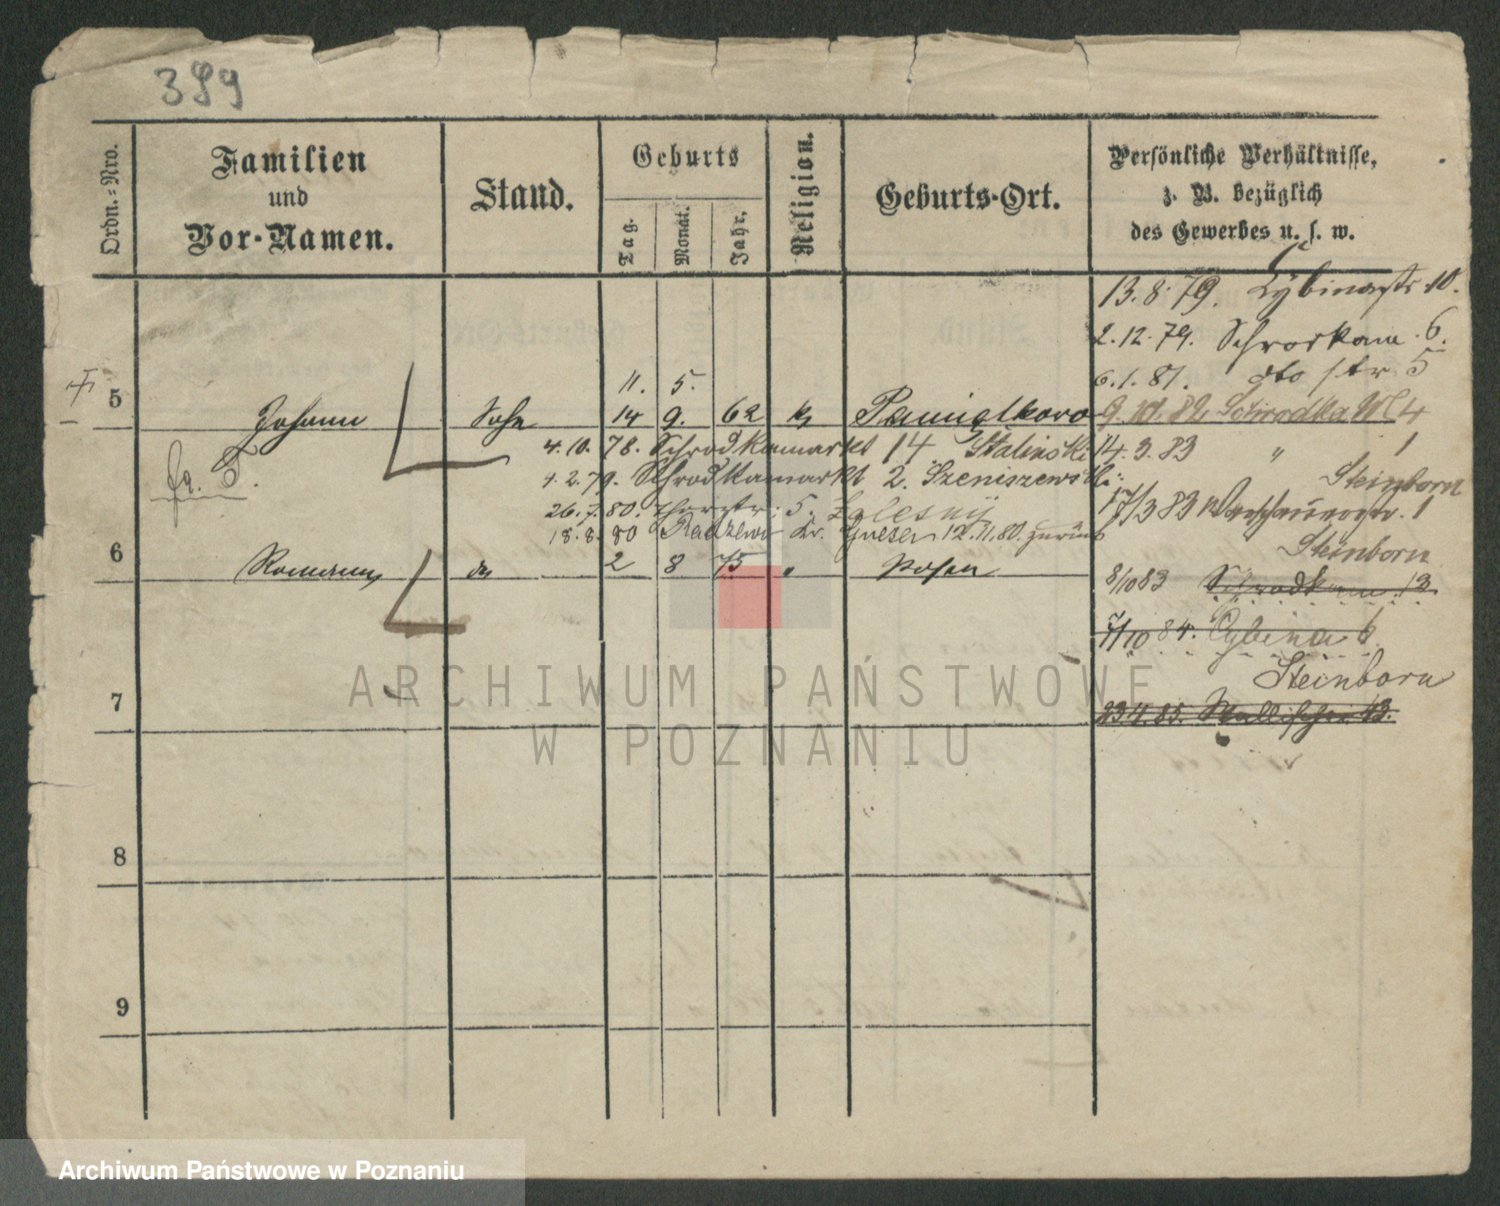 389
Ordn.-Nro.
Familien
und
Vor-Namen.
Stand.
Geburts
Tag.
Monat.
Jahr.
Religion.
Geburts-Ort.
Persönliche Verhältnisse,
z. B. bezüglich
des Gewerbes u. s. w.
13.8.79. Cybinastr 10.
2.12.79. Schrodkam. 6.
6.1.81. dto str 5
11. 5.
5 Johann Sohn 14 9. 62 k Pamiątkowo
82 Schrodka M 4
4.10.78. Schrodkamarkt 14. Stalinski
14.3.83 " 1
4.2.79. Schrodkamarkt 2. Szeniszewski
Steinborn
26.7.80. str. 5. Zalesny
17/3 83 Warschauerstr. 1
18.8.80 Radzewo Kr. Gnesen 12.11.80. zurück
Steinborn
6 Roman do 2 8 75 " Posen
8/10 83 Schrodkam. 13
7/10 84. Cybina 6
Steinborn
7
23 4 85. Wallischei 13.
8
9
ARCHIWUM PAŃSTWOWE
W POZNANIU
Archiwum Państwowe w Poznaniu